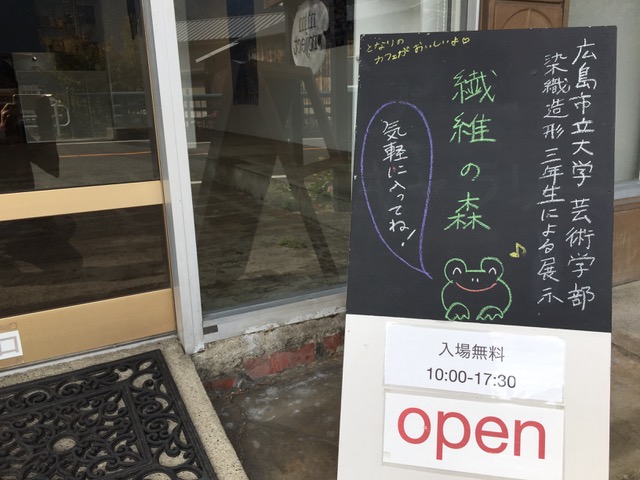 広島市立大学 芸術学部
染織造形 三年生による展示
繊維の森
となりの
カフェがおいしいよ♡
気軽に入ってね!
入場無料
10:00-17:30
open